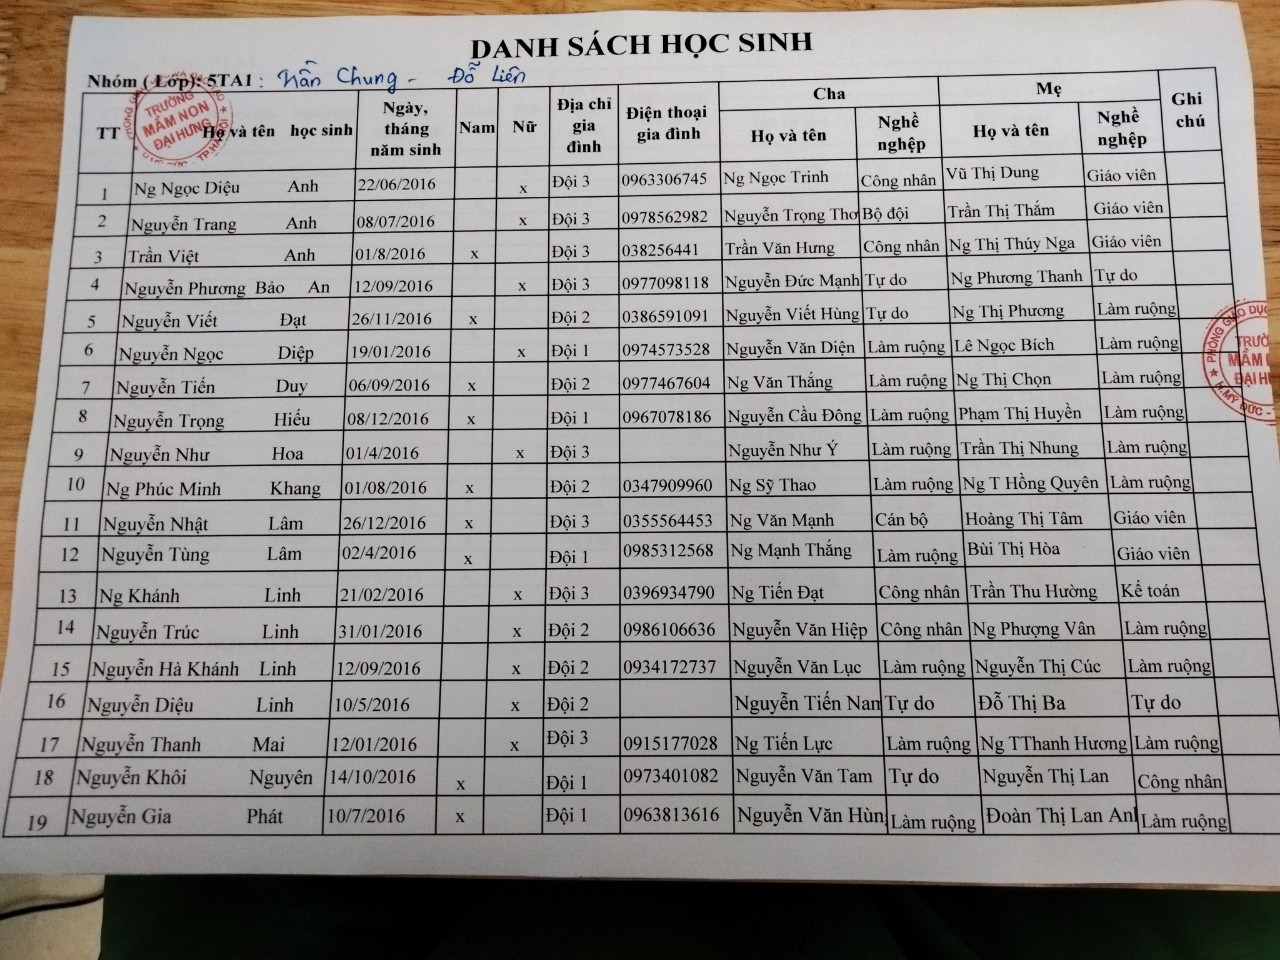 DANH SÁCH HỌC SINH
Nhóm ( Lớp): 5TA1 : Chung - Đỗ Liên
TT Họ và tên học sinh Ngày, tháng năm sinh Nam Nữ Địa chỉ gia đình Điện thoại gia đình Cha Mẹ Ghi chú
Họ và tên Nghề nghệp Họ và tên Nghề nghệp
TRƯỜNG MẦM NON ĐẠI HƯNG
1 Ng Ngọc Diệu Anh 22/06/2016 x Đội 3 0963306745 Ng Ngọc Trinh Công nhân Vũ Thị Dung Giáo viên
2 Nguyễn Trang Anh 08/07/2016 x Đội 3 0978562982 Nguyễn Trọng Thơ Bộ đội Trần Thị Thắm Giáo viên
3 Trần Việt Anh 01/8/2016 x Đội 3 038256441 Trần Văn Hưng Công nhân Ng Thị Thúy Nga Giáo viên
4 Nguyễn Phương Bảo An 12/09/2016 x Đội 3 0977098118 Nguyễn Đức Mạnh Tự do Ng Phương Thanh Tự do
5 Nguyễn Viết Đạt 26/11/2016 x Đội 2 0386591091 Nguyễn Viết Hùng Tự do Ng Thị Phương Làm ruộng
6 Nguyễn Ngọc Diệp 19/01/2016 x Đội 1 0974573528 Nguyễn Văn Diện Làm ruộng Lê Ngọc Bích Làm ruộng
7 Nguyễn Tiến Duy 06/09/2016 x Đội 2 0977467604 Ng Văn Thắng Làm ruộng Ng Thị Chọn Làm ruộng
8 Nguyễn Trọng Hiếu 08/12/2016 x Đội 1 0967078186 Nguyễn Cầu Đông Làm ruộng Phạm Thị Huyền Làm ruộng
9 Nguyễn Như Hoa 01/4/2016 x Đội 3 Nguyễn Như Ý Làm ruộng Trần Thị Nhung Làm ruộng
10 Ng Phúc Minh Khang 01/08/2016 x Đội 2 0347909960 Ng Sỹ Thao Làm ruộng Ng T Hồng Quyên Làm ruộng
11 Nguyễn Nhật Lâm 26/12/2016 x Đội 3 0355564453 Ng Văn Mạnh Cán bộ Hoàng Thị Tâm Giáo viên
12 Nguyễn Tùng Lâm 02/4/2016 x Đội 1 0985312568 Ng Mạnh Thắng Làm ruộng Bùi Thị Hòa Giáo viên
13 Ng Khánh Linh 21/02/2016 x Đội 3 0396934790 Ng Tiến Đạt Công nhân Trần Thu Hường Kế toán
14 Nguyễn Trúc Linh 31/01/2016 x Đội 2 0986106636 Nguyễn Văn Hiệp Công nhân Ng Phượng Vân Làm ruộng
15 Nguyễn Hà Khánh Linh 12/09/2016 x Đội 2 0934172737 Nguyễn Văn Lục Làm ruộng Nguyễn Thị Cúc Làm ruộng
16 Nguyễn Diệu Linh 10/5/2016 x Đội 2 Nguyễn Tiến Nan Tự do Đỗ Thị Ba Tự do
17 Nguyễn Thanh Mai 12/01/2016 x Đội 3 0915177028 Ng Tiến Lực Làm ruộng Ng TThanh Hương Làm ruộng
18 Nguyễn Khôi Nguyên 14/10/2016 x Đội 1 0973401082 Nguyễn Văn Tam Tự do Nguyễn Thị Lan Công nhân
19 Nguyễn Gia Phát 10/7/2016 x Đội 1 0963813616 Nguyễn Văn Hùn Làm ruộng Đoàn Thị Lan Anl Làm ruộng